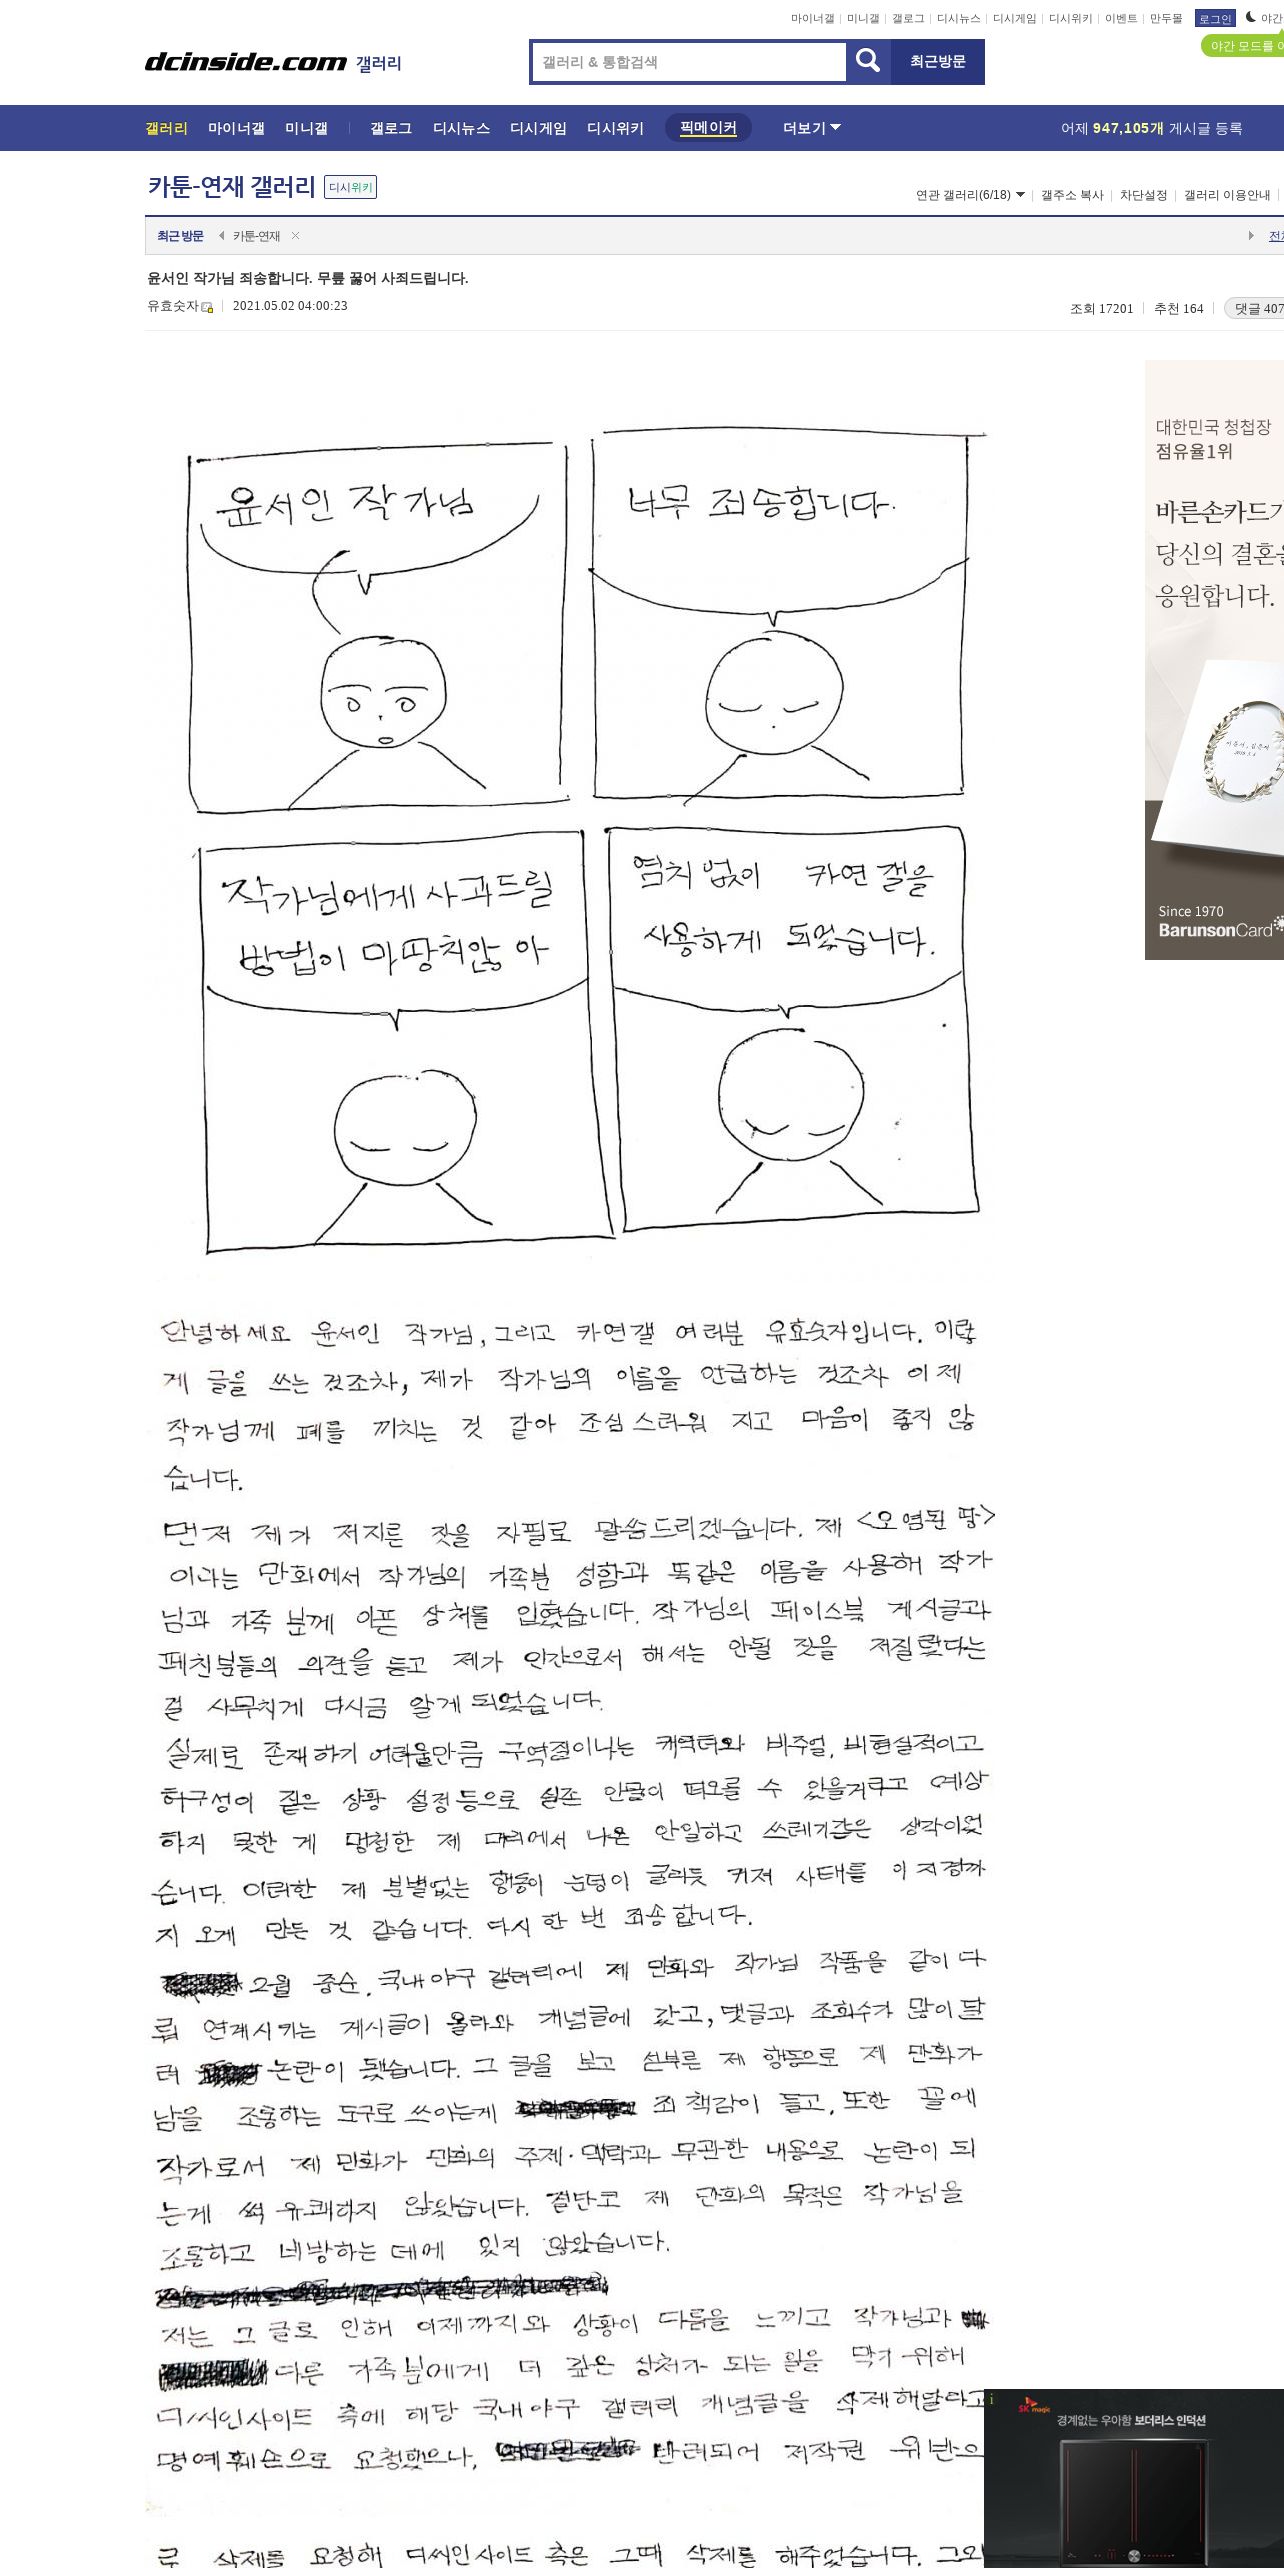 마이너갤 미니갤 갤로그 디시뉴스 디시게임 디시위키 이벤트 만두몰 로그인 야간
야간 모드를
dcinside.com 갤러리
갤러리 & 통합검색 최근방문
갤러리 마이너갤 미니갤 갤로그 디시뉴스 디시게임 디시위키 픽메이커 더보기 어제 947,105개 게시글 등록
카툰-연재 갤러리 디시위키
연관 갤러리(6/18) 갤주소 복사 차단설정 갤러리 이용안내
최근 방문 카툰-연재
윤서인 작가님 죄송합니다. 무릎 꿇어 사죄드립니다.
유효숫자 2021.05.02 04:00:23
조회 17201 추천 164 댓글 407
윤서인 작가님
너무 죄송합니다.
작가님에게 사과드릴
방법이 마땅치않아
염치 없이 카연갤을
사용하게 되었습니다.
대한민국 청첩장
점유율1위
바른손카드가
당신의 결혼을
응원합니다.
Since 1970
BarunsonCard
안녕하세요 윤서인 작가님, 그리고 카연갤 여러분 유효숫자입니다. 이렇
게 글을 쓰는 것조차, 제가 작가님의 이름을 언급하는 것조차 이제
작가님께 폐를 끼치는 것 같아 조심스러워 지고 마음이 좋지 않
습니다.
먼저 제가 저지른 짓을 자필로 말씀드리겠습니다. 제 <오염된 땅>
이라는 만화에서 작가님의 가족분 성함과 똑같은 이름을 사용해 작가
님과 가족 분께 아픈 상처를 입혔습니다. 작가님의 페이스북 게시글과
페친분들의 의견을 듣고 제가 인간으로서 해서는 안될 짓을 저질렀다는
걸 사무치게 다시금 알게 되었습니다.
실제로 존재하기 어려울만큼 구역질이나는 캐릭터와 비주얼, 비현실적이고
허구성이 짙은 상황 설정등으로 실존 인물이 떠오를 수 있을거라고 예상
하지 못한 게 멍청한 제 머리에서 나온 안일하고 쓰레기같은 생각이었
습니다. 이러한 제 분별없는 행동이 눈덩이 굴리듯 커져 사태를 이 지경까
지 오게 만든 것 같습니다. 다시 한 번 죄송합니다.
2월 중순, 국내야구 갤러리에 제 만화와 작가님 작품을 같이 다
뤄 연계시키는 게시글이 올라와 개념글에 갔고, 댓글과 조회수가 많이 달
려 논란이 됐습니다. 그 글을 보고 섣부른 제 행동으로 제 만화가
남을 조롱하는 도구로 쓰이는게 죄책감이 들고, 또한 끝에
작가로서 제 만화가 만화의 주제·맥락과 무관한 내용으로 논란이 되
는게 썩 유쾌하지 않았습니다. 결단코 제 만화의 목적은 작가님을
조롱하고 비방하는 데에 있지 않았습니다.
저는 그 글로 인해 이제까지와 상황이 다름을 느끼고 작가님과
다른 가족분에게 더 깊은 상처가 되는 일을 막기 위해
디씨인사이드 측에 해당 국내야구 갤러리 개념글을 삭제해달라고
명예훼손으로 요청했으나, 반려되어 저작권 위반으
로 삭제를 요청해 디씨인사이드 측은 그때 삭제를 해주었습니다.
SK magic
경계없는 우아함 보더리스 인덕션